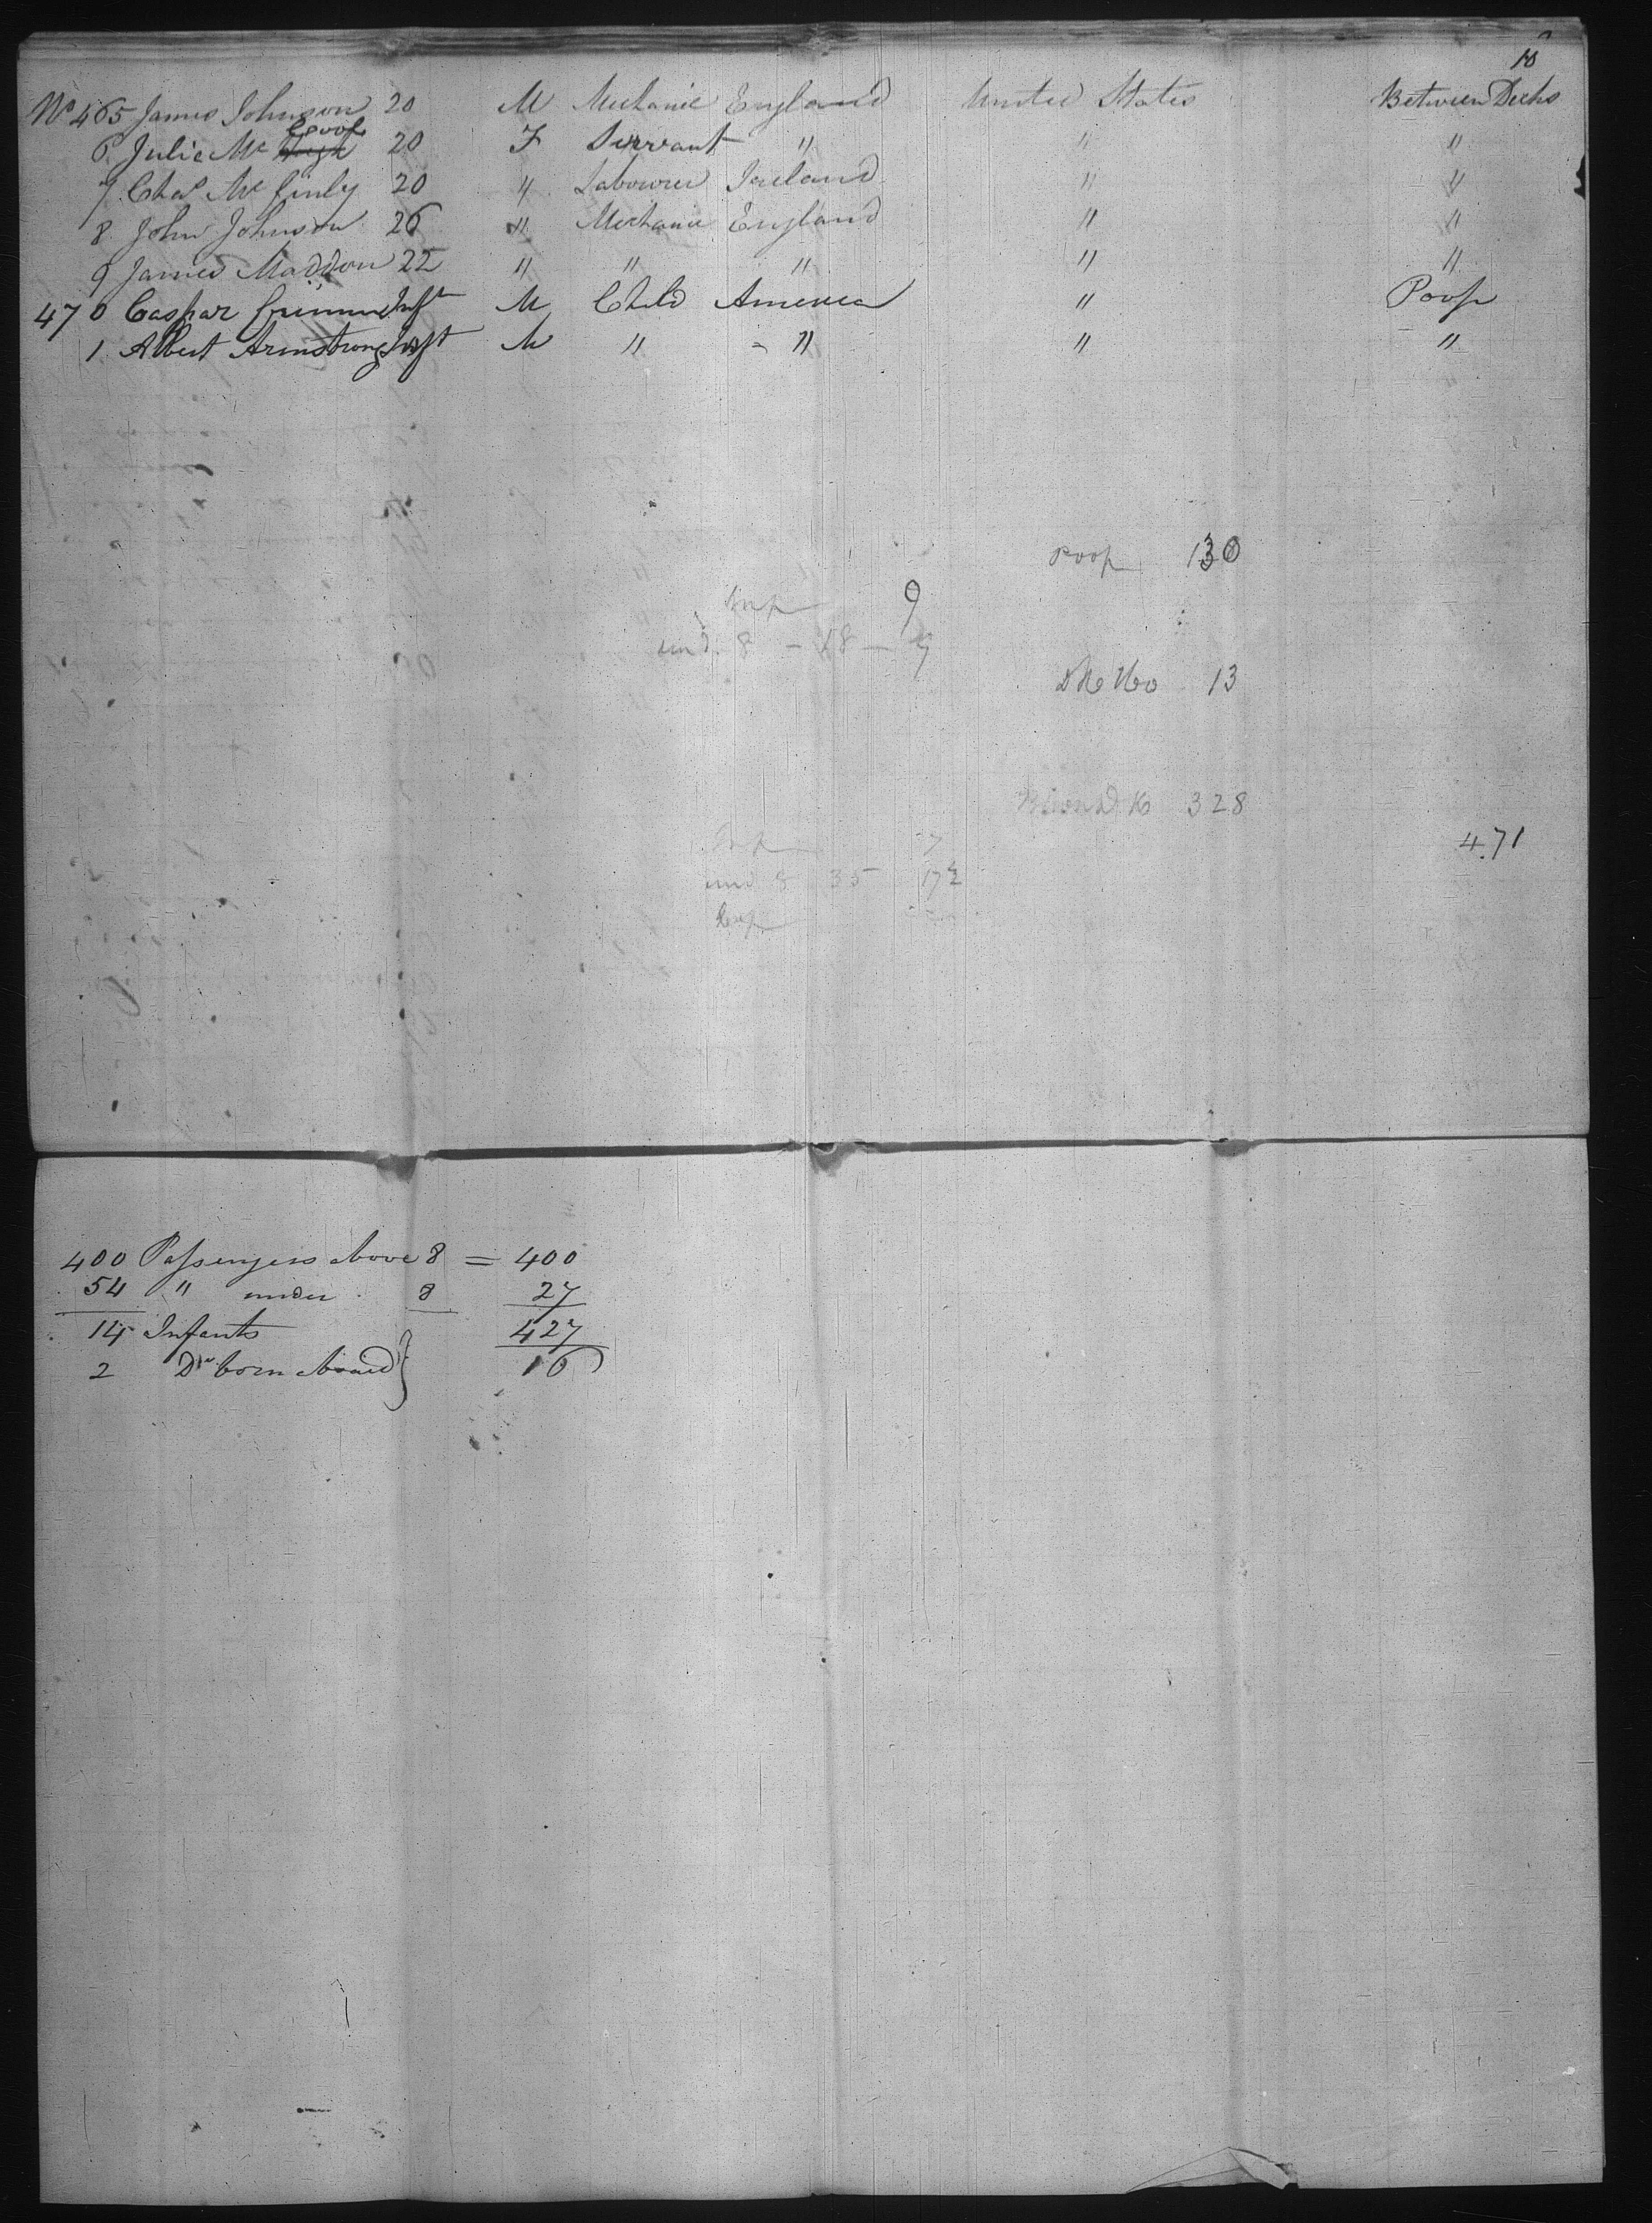 10
No 465 James Johnson 20 M Mechanic England United States Between Decks
6 Julia Mc Cool 20 F Servant " " "
7 Chas Mc Ginly 20 " Labourer Ireland " "
8 John Johnson 26 " Mechanic England " "
9 James Maddon 22 " " " " "
470 Caspar Inft M Child America " Poop
1 Albert Armstrong Inft M " " " "
Poop 130
Inf 9
und. 8 - 18 - 9
Dk Ho 13
328
471
Inf 7
und 8 35 17½
400 Passengers above 8 = 400
54 " under 8 27
14 Infants 427
2 Do born aboard } 16